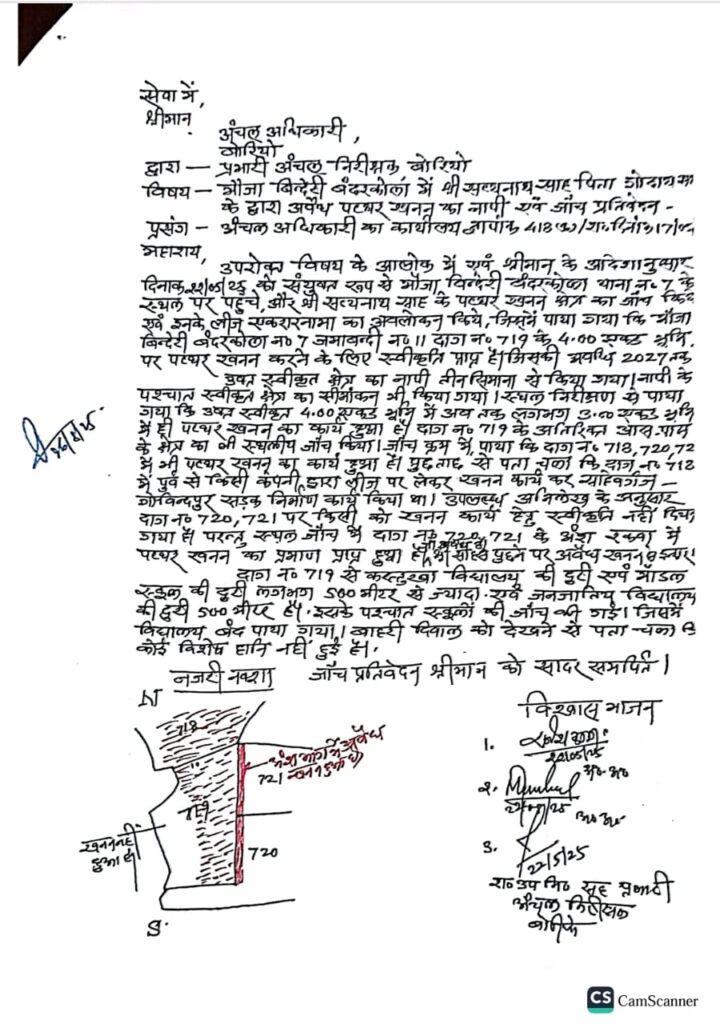 सेवा में,
श्रीमान्
अंचल अधिकारी,
बोरियो
द्वारा — प्रभारी अंचल निरीक्षक, बोरियो
विषय — मौजा विन्देरी बंदरकोला में श्री सत्यनाथ साह पिता
के द्वारा अवैध पत्थर खनन का नापी एवं जाँच प्रतिवेदन -
प्रसंग — अंचल अधिकारी का कार्यालय ज्ञापांक 418
महाशय,
उपरोक्त विषय के आलोक में एवं श्रीमान के आदेशानुसार
दिनांक 22/05/25 को संयुक्त रूप से मौजा विन्देरी बंदरकोला थाना न० 7 के
स्थल पर पहुंचे, और श्री सत्यनाथ साह के पत्थर खनन क्षेत्र का जाँच किये
एवं इनके लीज एकरारनामा का अवलोकन किये, जिसमें पाया गया कि मौजा
विन्देरी बंदरकोला न० 7 जमाबन्दी न० 11 दाग न० 719 के 4.00 एकड़ भूमि
पर पत्थर खनन करने के लिए स्वीकृति प्राप्त है। जिसकी अवधि 2027 तक
उक्त स्वीकृत क्षेत्र का नापी तीन सिमाना से किया गया। नापी के
पश्चात स्वीकृत क्षेत्र का सीमांकन भी किया गया। स्थल निरीक्षण से पाया
गया कि उक्त स्वीकृत 4.00 एकड़ भूमि में अब तक लगभग 3.00 एकड़ भूमि
में ही पत्थर खनन का कार्य हुआ है। दाग न० 719 के अतिरिक्त आस-पास
के क्षेत्र का भी स्थलीय जाँच किया। जाँच क्रम में पाया कि दाग न० 718, 720, 72
में भी पत्थर खनन का कार्य हुआ है। पुछताछ से पता चला कि दाग न० 718
में पुर्व से किसी कंपनी द्वारा लीज पर लेकर खनन कार्य कर साहेबगंज -
गोविन्दपुर सड़क निर्माण कार्य किया था। उपलब्ध अभिलेख के अनुसार
दाग न० 720, 721 पर किसी को खनन कार्य हेतु स्वीकृति नहीं दिया
गया है। परन्तु स्थल जाँच में दाग न० 720, 721 के अंश रकवा में
पत्थर खनन का प्रमाण प्राप्त हुआ है। पुछने पर अवैध खनन
दाग न० 719 से कस्तूरबा विद्यालय की दुरी एवं मॉडल
स्कूल की दुरी लगभग 500 मीटर से ज्यादा एवं जनजातिय विद्यालय
की दुरी 500 मीटर है। इसके पश्चात स्कूलों की जाँच की गई। जिसमें
विद्यालय बंद पाया गया। बाहरी दिवाल को देखने से पता चला कि
कोई विशेष हानि नहीं हुई है।
जाँच प्रतिवेदन श्रीमान को सादर समर्पित।
नजरी नक्शा
N
718
719
721
अंश भाग में अवैध
खनन हुआ है
720
खनन नहीं
हुआ है
S.
विश्वास भाजन
1.
22/05/25
अ० अ०
2.
22/05/25
अ० अ०
3.
22/5/25
रा० उप नि० सह प्रभारी
अंचल निरीक्षक
बोरियो
CS CamScanner